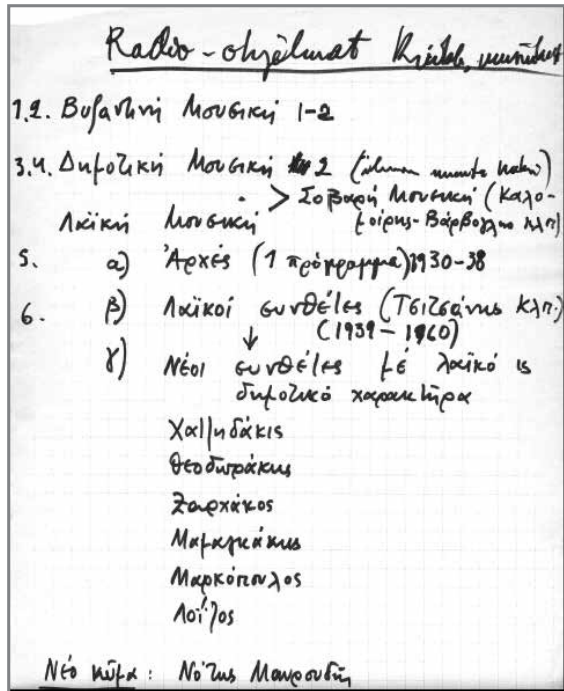 Radio-ohjelmat
1.2. Βυζαντινή Μουσική 1-2
3.4. Δημοτική Μουσική 2
> Σοβαρή Μουσική (Καλο-
μοίρης-Βάρβογλης κλπ)
Λαϊκή Μουσική
5. α) Ἀρχές (1 πρόγραμμα) 1930-38
6. β) Λαϊκοί συνθέτες (Τσιτσάνης κλπ.)
(1939-1960)
γ) Νέοι συνθέτες μέ λαϊκό
δημοτικό χαρακτήρα
Χατζηδάκις
Θεοδωράκης
Ξαρχάκος
Μαμαγκάκης
Μαρκόπουλος
Λοΐζος
Νέο κῦμα: Νότης Μαυρουδής